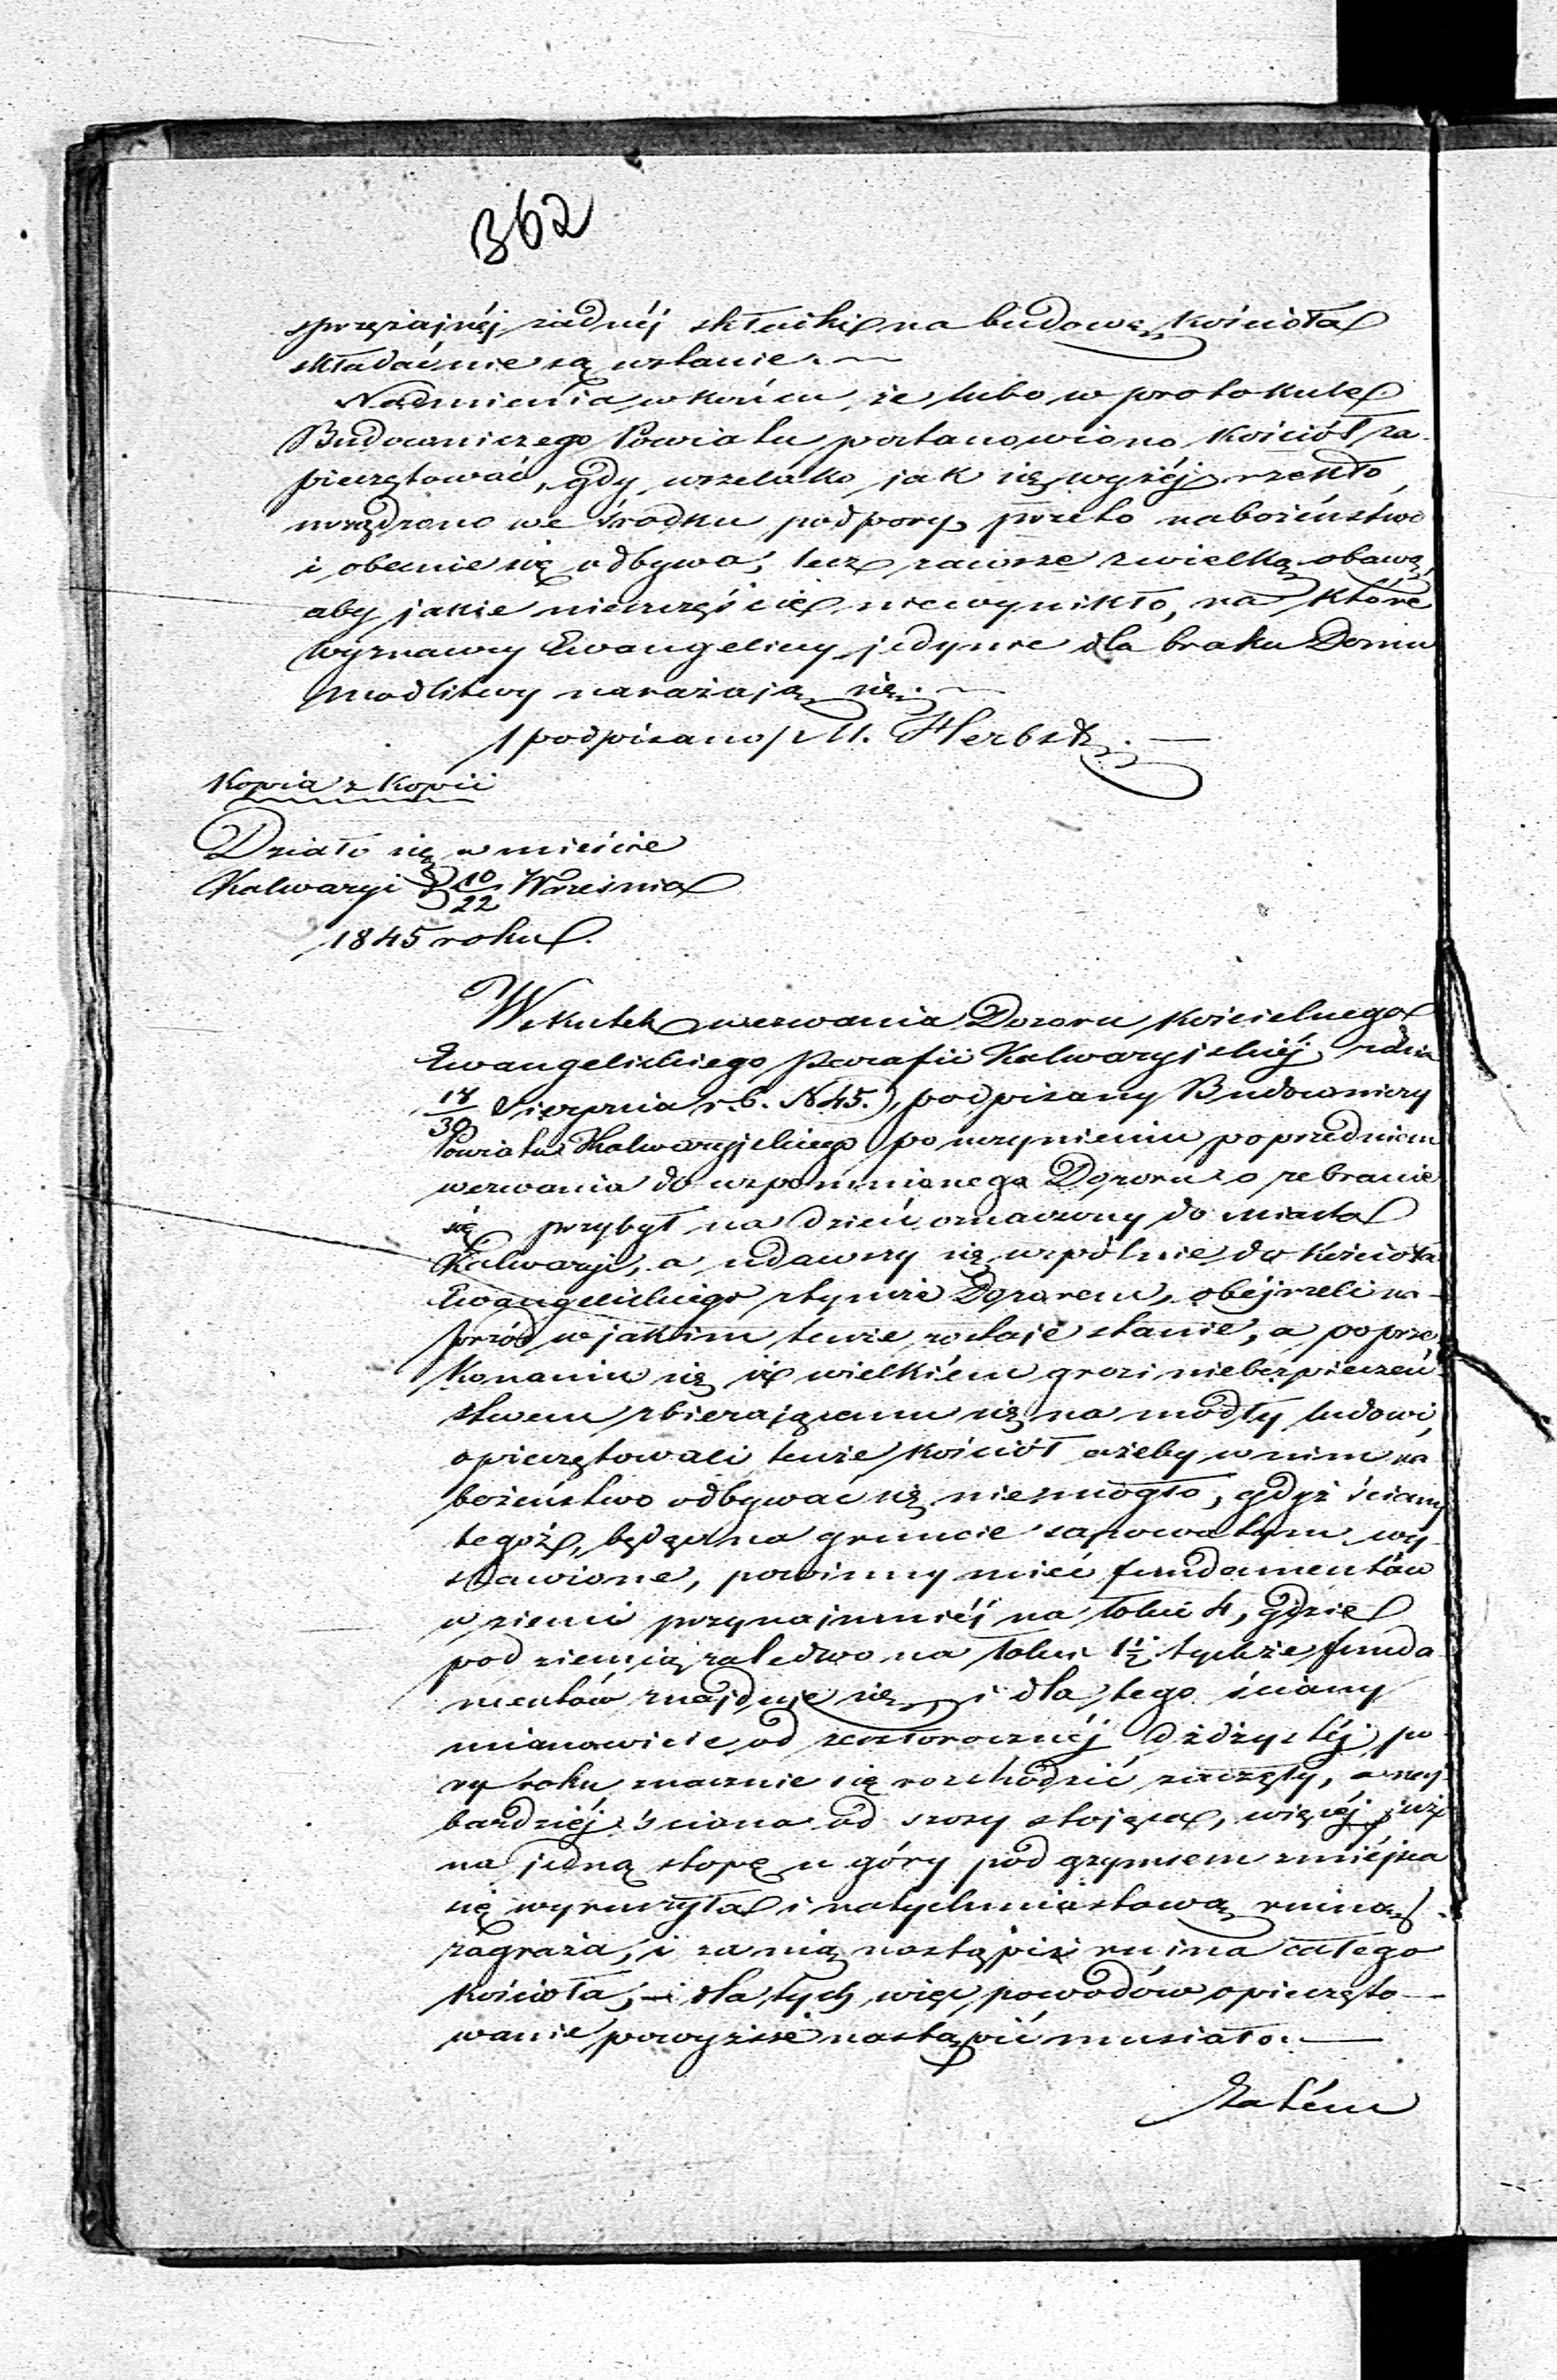 362
sprzężajnéj żadnéj składki na budowę kościoła
składać nie są wstanie. —
Nadmienia wkońcu, że lubo w protokule
Budowniczego Powiatu postanowiono Kościół za-
pieczętować, gdy wszelako jak się wyżéj rzekło,
urządzono we środku podpory, przeto nabożeństwo
i obecnie się odbywa, lecz zawsze z wielką obawą,
aby jakie nieszczęście niewynikło, na które
wyznawcy Ewangeliccy jedynie dla braku Domu
modlitwy narażają się. —
/podpisano/ M. Herbst. —
Kopia z Kopii
Działo się w mieście
Kalwaryi d 10/22 Września
1845 roku.
Wskutek wezwania Dozoru Kościelnego
Ewangelickiego Parafii Kalwaryjskiéj z dnia
18/30 Sierpnia r. b. N 45.), podpisany Budowniczy
Powiatu Kalwaryjskiego po uczynieniu poprzedniem
wezwania do wspomnianego Dozoru o zebranie
się przybył na dzień oznaczony do miasta
Kalwaryi, a udawszy się wspólnie do Kościoła
Ewangelickiego z tymże Dozorem, obéjrzeli na-
przód w jakim tenże zostaje stanie, a po prze-
konaniu się iż wielkiém grozi niebezpieczeń-
stwem zbierającemu się na modły ludowi,
opieczętowali tenże kościół ażeby w nim na-
bożeństwo odbywać się niemogło, gdyż ściany
tegoż, będąc na gruncie sapowatym wy-
stawione, powinny mieć fundamentów
w ziemi przynajmniéj na łokci 4, gdzie
pod ziemią zaledwo na łokci 1 1/2 tychże funda-
mentów znajduje się, i dla tego ściany
mianowicie od zeszłorocznéj dżdżystéj po-
ry roku znacznie się rozchodzić zaczęły, a naj-
bardziéj ściana od szosy stojąca, więcéj już
na jedną stopę u góry pod gzymsem z miéjsca
się wyruszyła i natychmiastową ruiną
zagraża, i za nią nastąpić ruina całego
kościoła; — dla tych więc powodów opieczęto-
wanie powyższe nastąpić musiało. —
Zatém